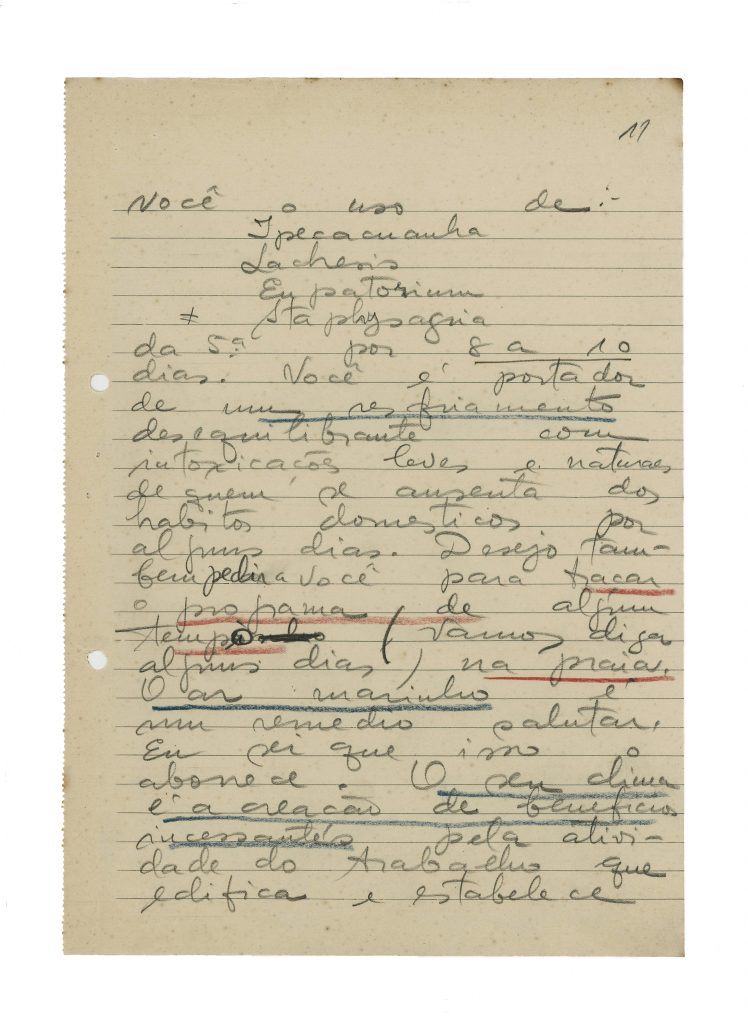 11
Você o uso de:-
Ipecacuanha
Lachesis
Eupatorium
≠ Staphysagria
da 5ª por 8 a 10
dias. Você é portador
de um resfriamento
desequilibrante com
intoxicacões leves e naturaes
de quem se ausenta dos
habitos domesticos por
alguns dias. Desejo tam-
bem pedir a você para traçar
o programa de algum
tempo (vamos diga
alguns dias) na praia.
O ar marinho é
um remedio salutar.
Eu sei que isso o
aborrece. O seu clima
é a creacão de beneficios
incessantes pela ativi-
dade do trabalho que
edifica e estabelece